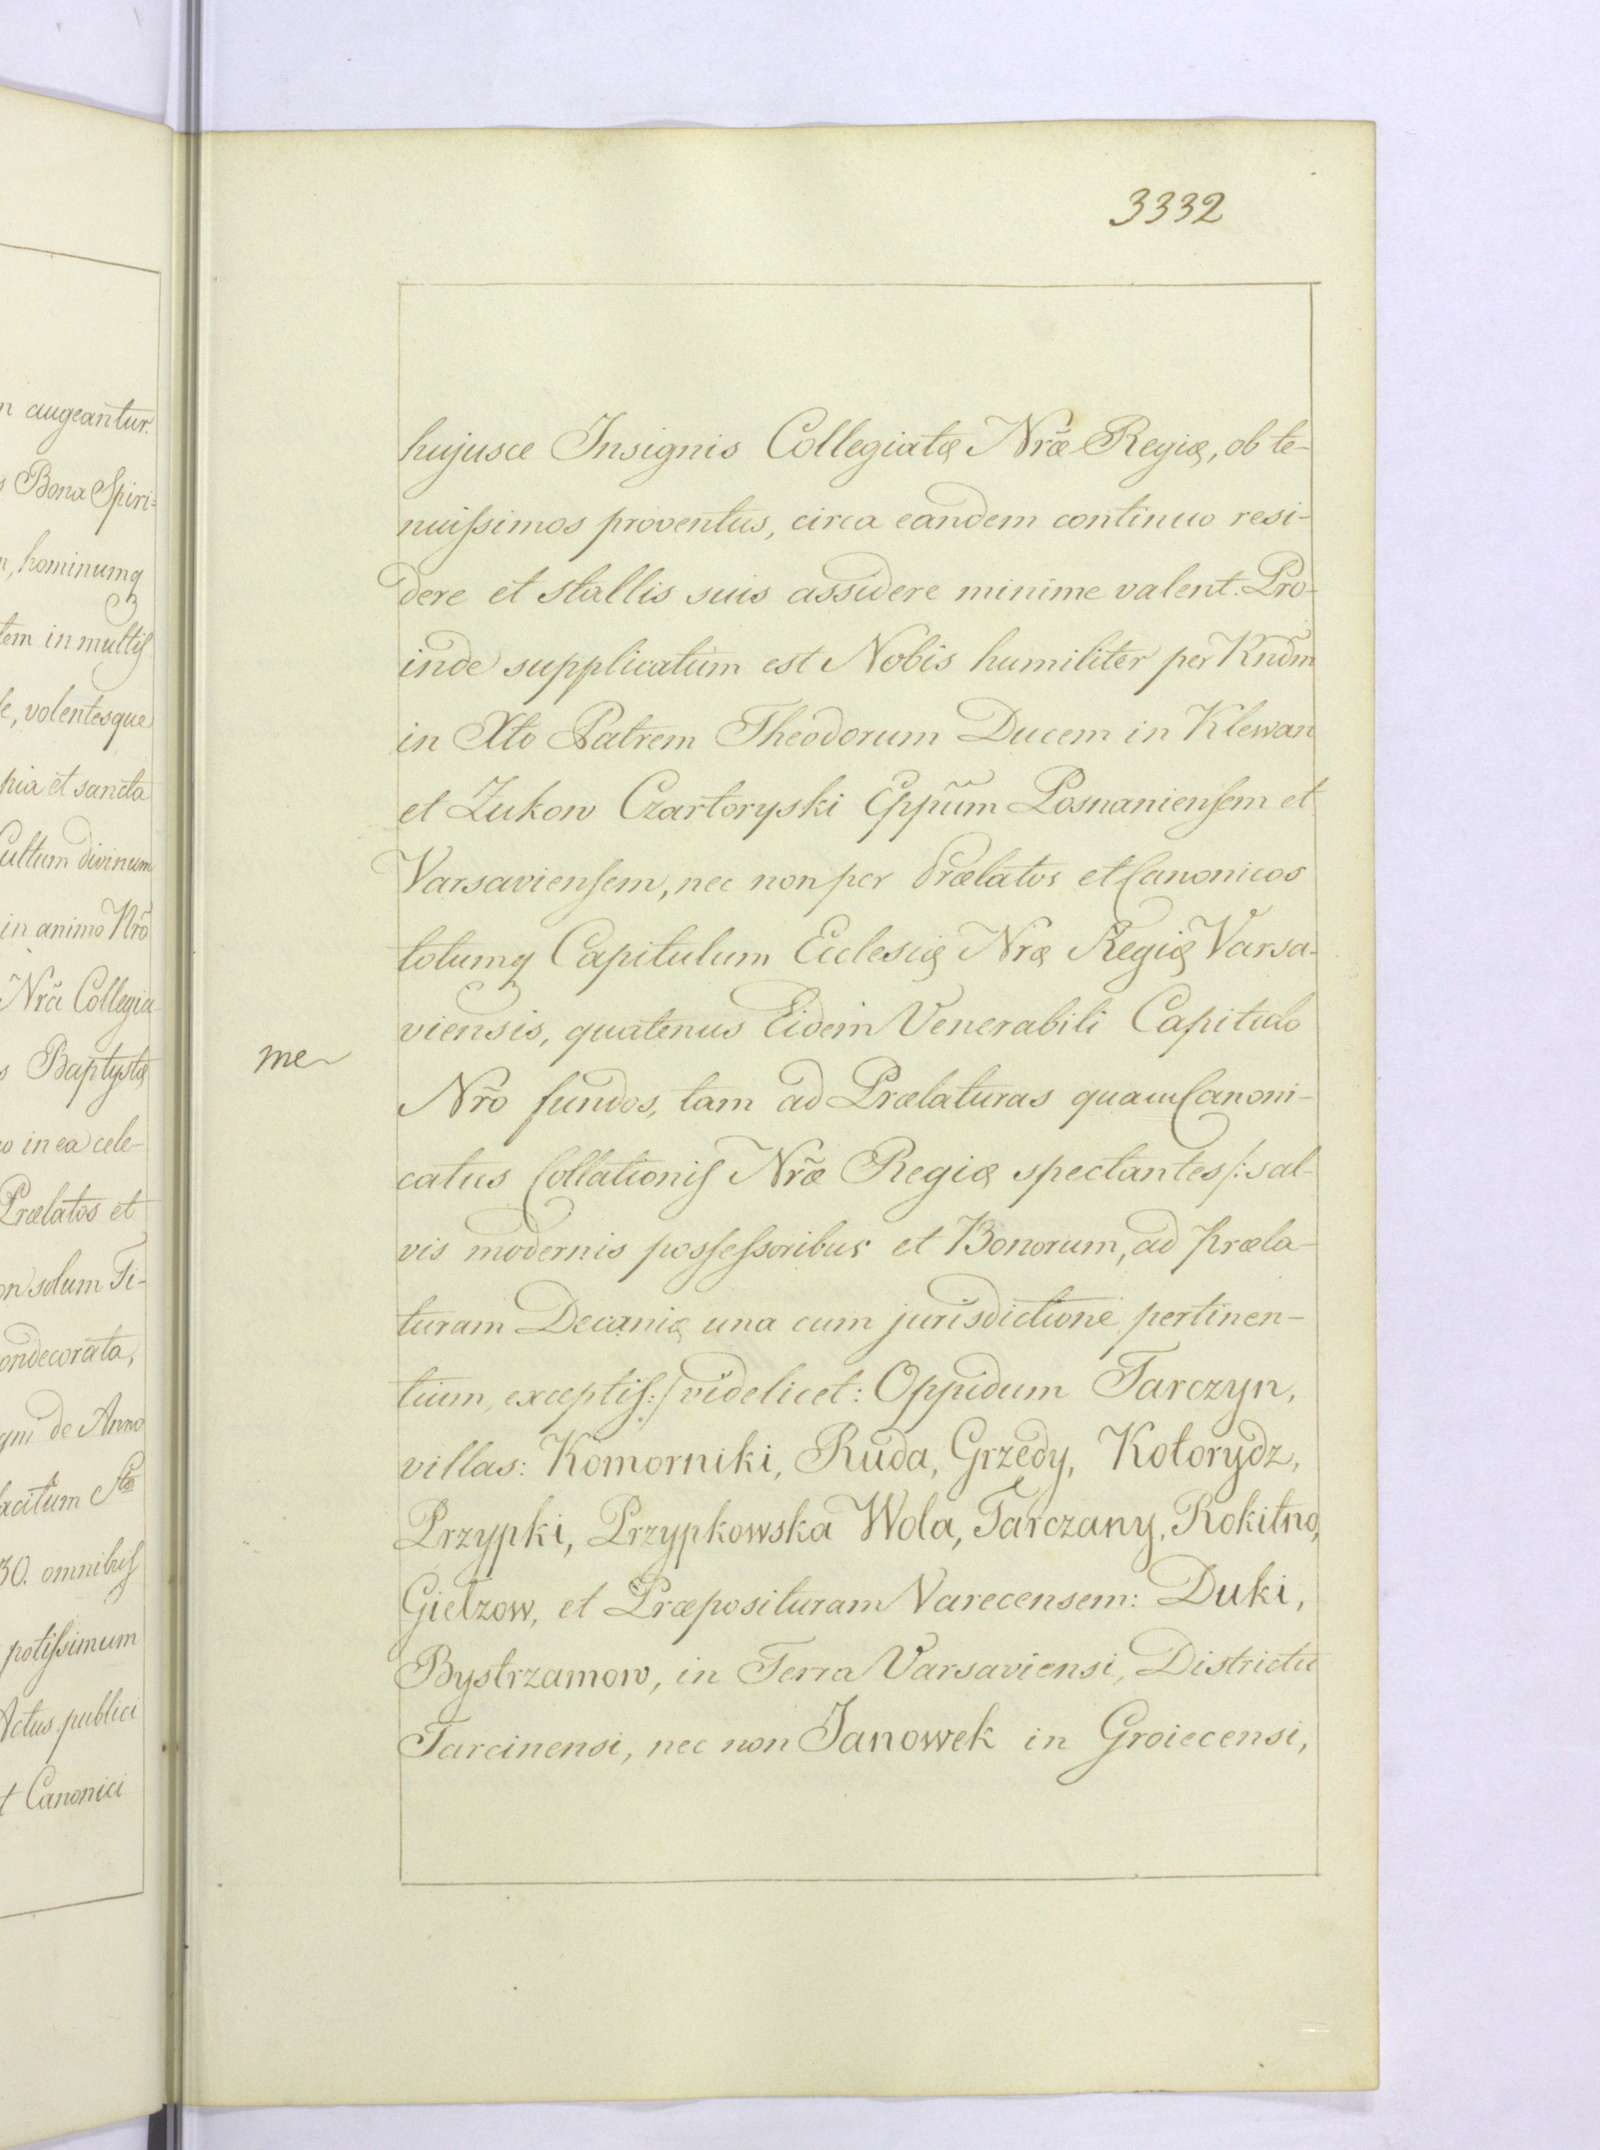 3332
n augeantur.
s Bona Spiri=
n, hominumq
tem in multis
le, volentesque
pia et sancta
Cultum divinum
in animo Nrõ
Nrã Collegia-
s Baptystę
o in ea cele-
Prælatos et
on solum Ti-
ondecorata,
gni de Anno
lacitum Stæ
30. omnibus
potissimum
Actus publici
t Canonici
me
hujusce Insignis Collegiatę Nræ̃ Regię, ob te-
nuissimos proventus, circa eandem continuo resi-
dere et stallis suis assidere minime valent. Pro-
inde supplicatum est Nobis humiliter per Rnd̃m
in Xto Patrem Theodorum Ducem in Klewan
et Zukow Czartoryski Eppũm Posnaniensem et
Varsaviensem, nec non per Prælatos et Canonicos
totumq Capitulum Ecclesię Nrę Regię Varsa-
viensis, quatenus Eidem Venerabili Capitulo
Nrõ fundos, tam ad Prælaturas quam Canoni-
catus Collationis Nræ̃ Regię spectantes /: sal-
vis modernis possessoribus et Bonorum, ad Præla-
turam Decanię una cum jurisdictione pertinen-
tium, exceptis :/ videlicet: Oppidum Tarczyn,
villas: Komorniki, Ruda, Grzedy, Kotorydz,
Przypki, Przypkowska Wola, Tarczany, Rokitno,
Gietzow, et Præposituram Varecensem: Duki,
Bystrzamow, in Terra Varsaviensi, Districtu
Tarcinensi, nec non Janowek in Groiecensi,